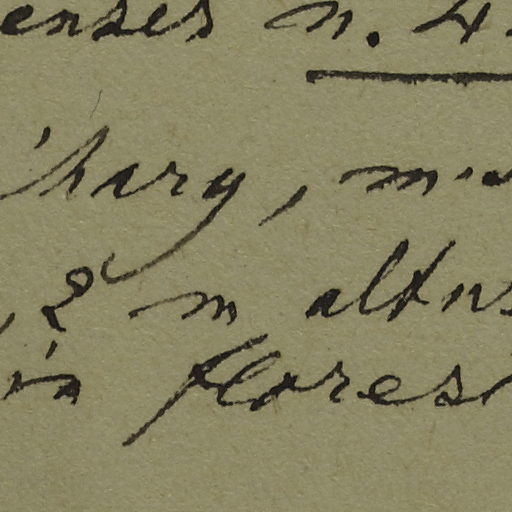 enses n. 4
'hary, m
, 2 m altus
in flores